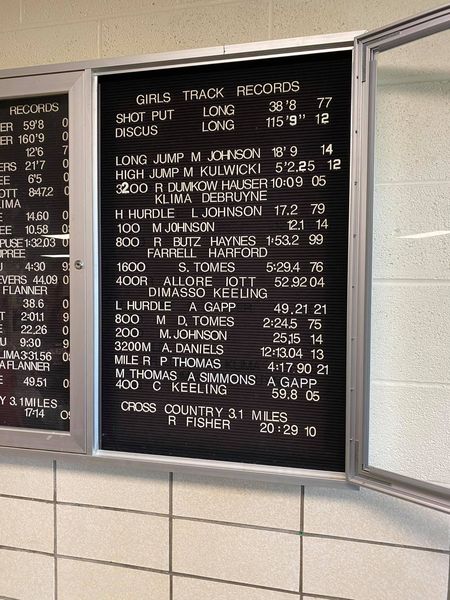 RECORDS
ER 59'8
ER 160'9
12'6
ERS 21'7
EE 6'5
OTT 8:47.2
LIMA
E 14.60
EE 10.58
PUSE 1:32.03
UPREE
U 4:30
EVERS 44.09
FLANNER
38.6
T 2:01.1
E 22.26
U 9:30
LIMA 3:31.56
A FLANNER
E 49.51
Y 3.1 MILES
17:14
GIRLS TRACK RECORDS
SHOT PUT LONG 38'8 77
DISCUS LONG 115'9" 12
LONG JUMP M JOHNSON 18' 9 14
HIGH JUMP M KULWICKI 5'2.25 12
3200 R DUMKOW HAUSER 10:09 05
KLIMA DEBRUYNE
H HURDLE L JOHNSON 17.2 79
100 M JOHNSON 12.1 14
800 R BUTZ HAYNES 1:53.2 99
FARRELL HARFORD
1600 S. TOMES 5:29.4 76
400R ALLORE IOTT 52.92 04
DIMASSO KEELING
L HURDLE A GAPP 49.21 21
800 M D. TOMES 2:24.5 75
200 M. JOHNSON 25.15 14
3200M A. DANIELS 12:13.04 13
MILE R P THOMAS 4:17.90 21
M THOMAS A SIMMONS A GAPP
400 C KEELING 59.8 05
CROSS COUNTRY 3.1 MILES
R FISHER 20:29 10